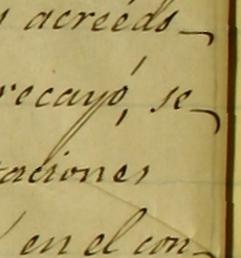 acreeds-
recayó, se-
taciones
en el con-